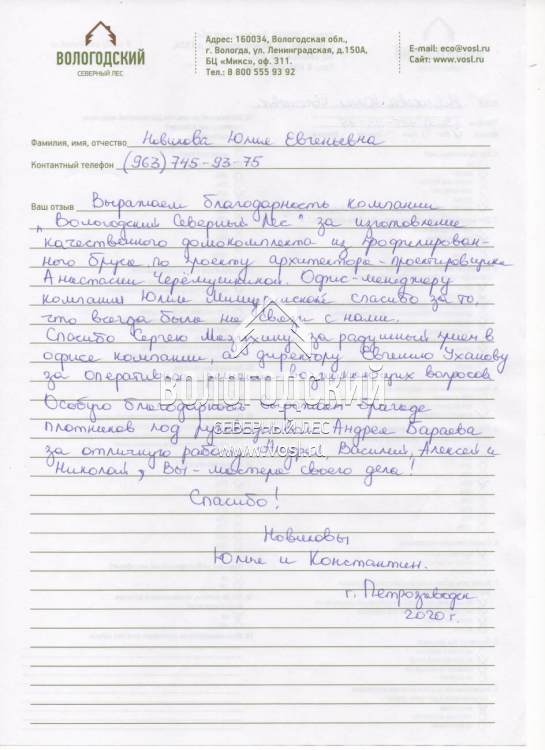 ВОЛОГОДСКИЙ
СЕВЕРНЫЙ ЛЕС
Адрес: 160034, Вологодская обл.,
г. Вологда, ул. Ленинградская, д.150А,
БЦ «Микс», оф. 311.
Тел.: 8 800 555 93 92
E-mail: eco@vosl.ru
Сайт: www.vosl.ru
Фамилия, имя, отчество Новикова Юлия Евгеньевна
Контактный телефон (963) 745-93-75
Ваш отзыв Выражаем благодарность компании
"Вологодский Северный Лес" за изготовление
качественного домокомплекта из профилирован-
ного бруса по проекту архитектора-проектировщика
Анастасии Черёмушкиной. Офис-менеджеру
компании Юлии спасибо за то,
что всегда была на связи с нами.
Спасибо Сергею за радушный прием в
офисе компании, а директору Евгению Уханову
за вопросов
Особую благодарность бригаде
плотников под Андрея Бараева
за отличную работу. Андрей, Василий, Алексей и
Николай, Вы - мастера своего дела!
Спасибо!
Новиковы
Юлия и Константин.
г. Петрозаводск
2020 г.
ВОЛОГОДСКИЙ
СЕВЕРНЫЙ ЛЕС
www.vosl.ru